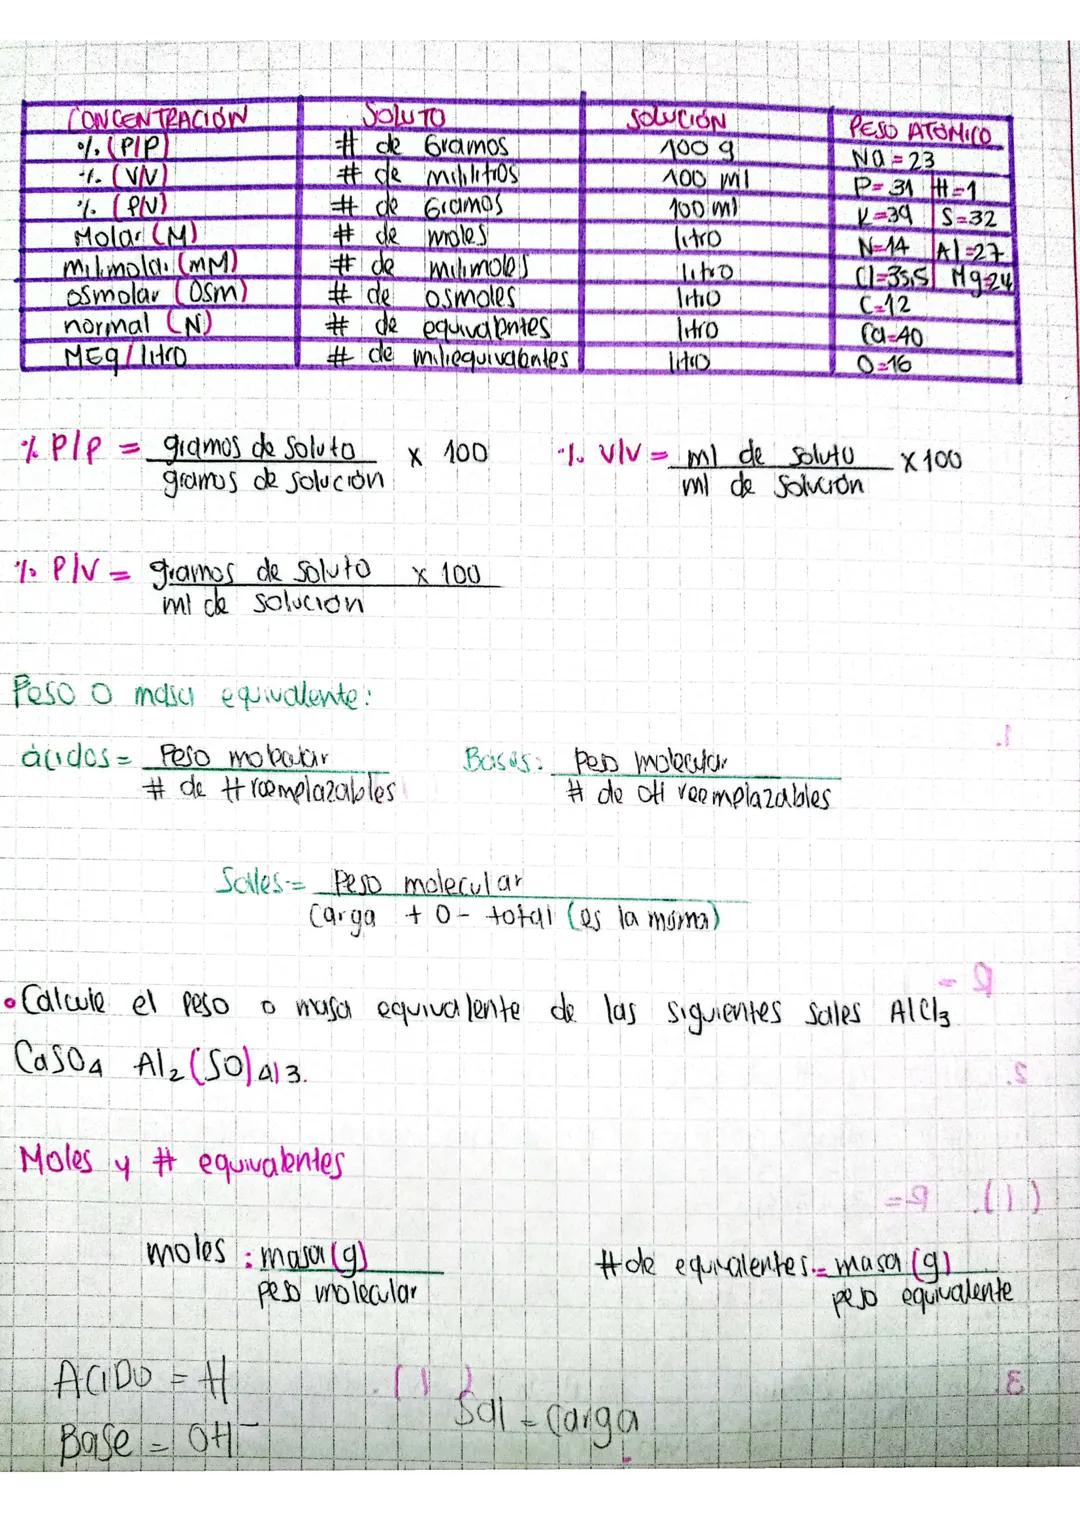 CONCENTRACIÓN SOLUTO SOLUCIÓN PESO ATÓMICO
% (P/P) # de Gramos 100 g Na = 23
% (V/V) # de mililitros 100 ml P= 31 H=1
% (P/V) # de Gramos 100 ml K=39 S=32
Molar (M) # de moles litro N=14 Al=27
milimolar (mM) # de milimoles litro Cl=35,5 Mg=24
osmolar (Osm) # de osmoles litro C=12
normal (N) # de equivalentes litro Ca=40
MEq/litro # de miliequivalentes litro O=16
% P/P = gramos de soluto x 100
gramos de solución
% V/V = ml de soluto x 100
ml de solución
% P/V = gramos de soluto x 100
ml de solución
Peso o masa equivalente:
ácidos = Peso molecular
# de H reemplazables
Bases: Peso molecular
# de OH reemplazables
Sales = Peso molecular
Carga + o - total (es la misma)
• Calcule el peso o masa equivalente de las siguientes sales AlCl3
CaSO4 Al2(SO)4)3.
Moles y # equivalentes
moles : masa (g)
peso molecular
# de equivalentes = masa (g)
peso equivalente
ACIDO = H
Sal = carga
Base = OH⁻